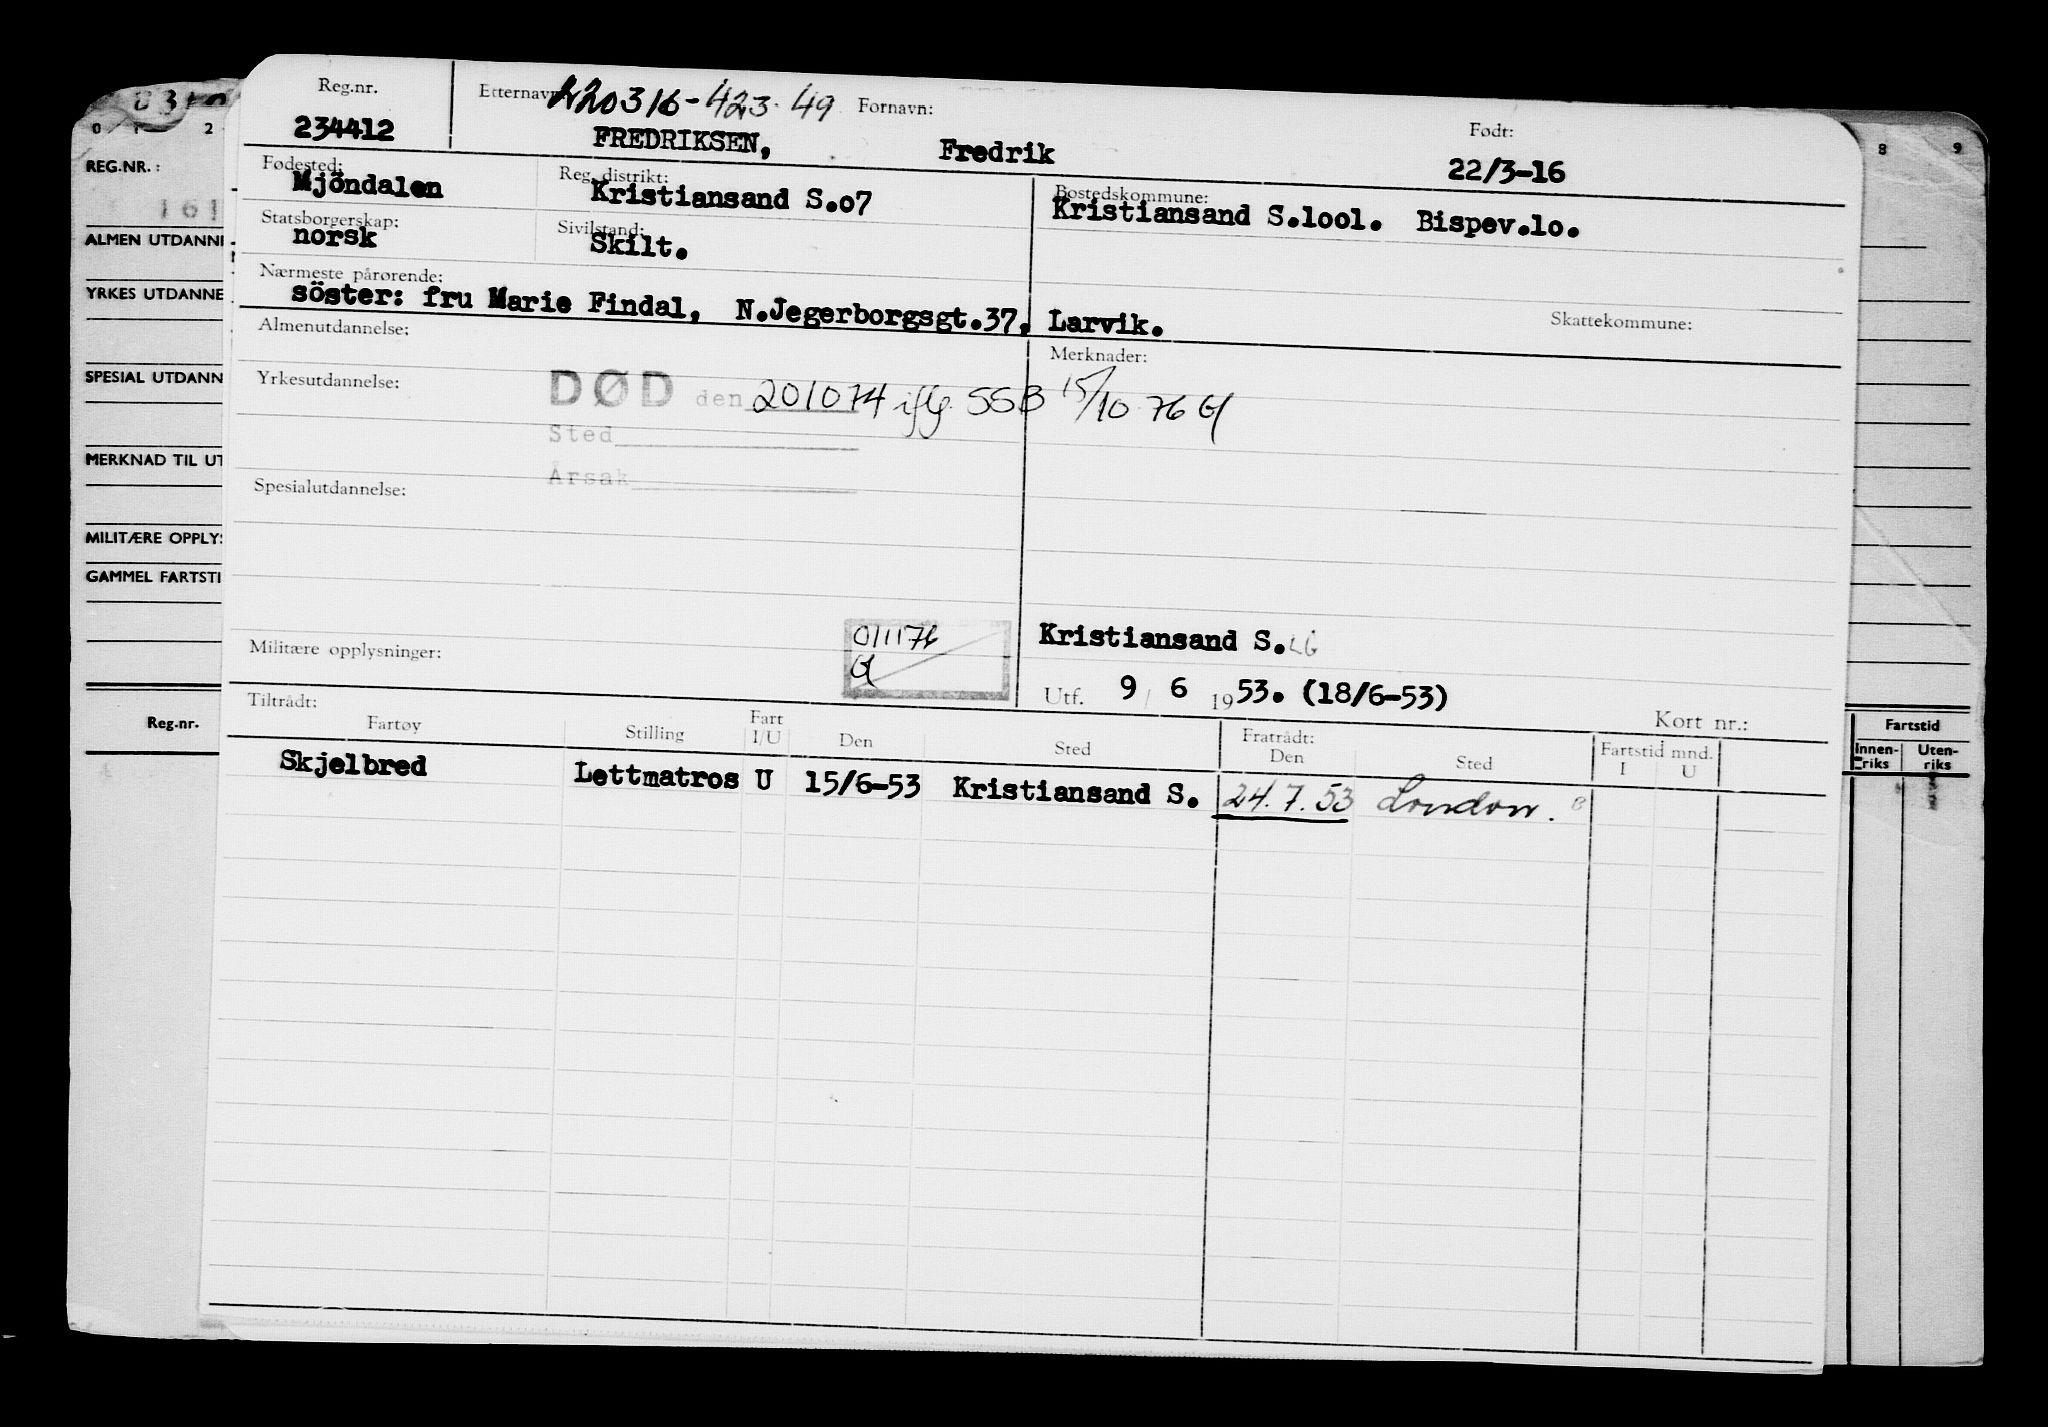 Reg.nr. Etternavn: 220316-423 49 Fornavn: Født:
234412 FREDRIKSEN, Fredrik 22/3-16
Fødested: Reg. distrikt: Bostedskommune:
Mjöndalen Kristiansand S.o7 Kristiansand S.lool. Bispev.lo.
Statsborgerskap: Sivilstand:
norsk Skilt.
Nærmeste pårørende:
söster: fru Marie Findal, N.Jegerborgsgt.37, Larvik. Skattekommune:
Almenutdannelse: Merknader:
Yrkesutdannelse: DØD den 201074 iflg. SSB 15/10 76
Sted
Årsak
Spesialutdannelse:
011176 Kristiansand S.
Militære opplysninger:
Utf. 9 / 6 1953. (18/6-53)
Tiltrådt: Kort nr.:
Fartøy Stilling Fart I/U Den Sted Fratrådt: Den Sted Fartstid mnd. I U
Skjelbred Lettmatros U 15/6-53 Kristiansand S. 24.7.53 London.
0 1 2 8 9
REG.NR.:
161
ALMEN UTDANN
YRKES UTDANNE
SPESIAL UTDANN
MERKNAD TIL UT
MILITÆRE OPPLYS
GAMMEL FARTSTI
Reg.nr. Fartstid
Innen-riks Uten-riks